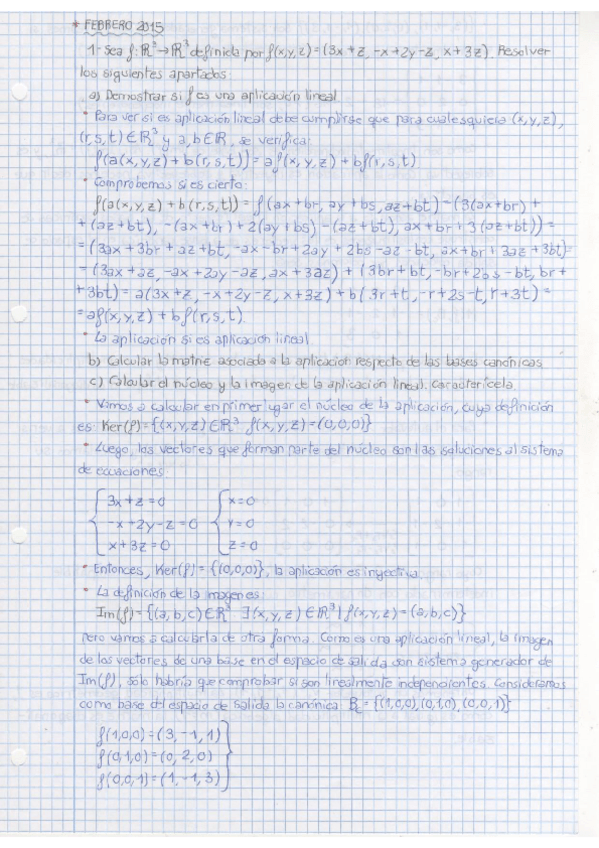 * FEBRERO 2015
1- Sea f: ℝ³→ℝ³ definida por f(x,y,z)=(3x+z, -x+2y-z, x+3z). Resolver
los siguientes apartados
a) Demostrar si f es una aplicación lineal
* Para ver si es aplicación lineal debe cumplirse que para cualesquiera (x,y,z),
(r,s,t)∈ℝ³ y a,b∈ℝ, se verifica:
f(a(x,y,z)+b(r,s,t))=af(x,y,z)+bf(r,s,t)
* Comprobemos si es cierto:
f(a(x,y,z)+b(r,s,t))=f(ax+br, ay+bs, az+bt)=(3(ax+br)+
+(az+bt), -(ax+br)+2(ay+bs)-(az+bt), ax+br+3(az+bt))=
=(3ax+3br+az+bt, -ax-br+2ay+2bs-az-bt, ax+br+3az+3bt)=
=(3ax+az, -ax+2ay-az, ax+3az)+(3br+bt, -br+2bs-bt, br+
+3bt)=a(3x+z, -x+2y-z, x+3z)+b(3r+t, -r+2s-t, r+3t)=
=af(x,y,z)+bf(r,s,t)
* La aplicación si es aplicación lineal
b) Calcular la matriz asociada a la aplicación respecto de las bases canónicas
c) Calcular el núcleo y la imagen de la aplicación lineal. Caracterícela
* Vamos a calcular en primer lugar el núcleo de la aplicación, cuya definición
es: Ker(f)={(x,y,z)∈ℝ³ f(x,y,z)=(0,0,0)}
* Luego, los vectores que forman parte del núcleo son las soluciones al sistema
de ecuaciones:
{ 3x+z=0 { x=0
-x+2y-z=0 y=0
x+3z=0 z=0
* Entonces, Ker(f)={(0,0,0)}, la aplicación es inyectiva
* La definición de la imagen es:
Im(f)={(a,b,c)∈ℝ³ ∃(x,y,z)∈ℝ³| f(x,y,z)=(a,b,c)}
pero vamos a calcularla de otra forma. Como es una aplicación lineal, la imagen
de los vectores de una base en el espacio de salida son sistema generador de
Im(f), sólo habría que comprobar si son linealmente independientes. Consideramos
como base del espacio de salida la canónica Bc={(1,0,0),(0,1,0),(0,0,1)}
f(1,0,0)=(3,-1,1)
f(0,1,0)=(0,2,0) }
f(0,0,1)=(1,-1,3)